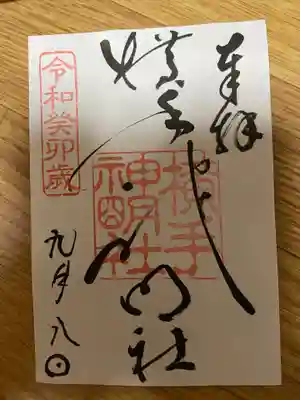 奉拝
横手神明社
横手神明社
令和癸卯歳
九月八日